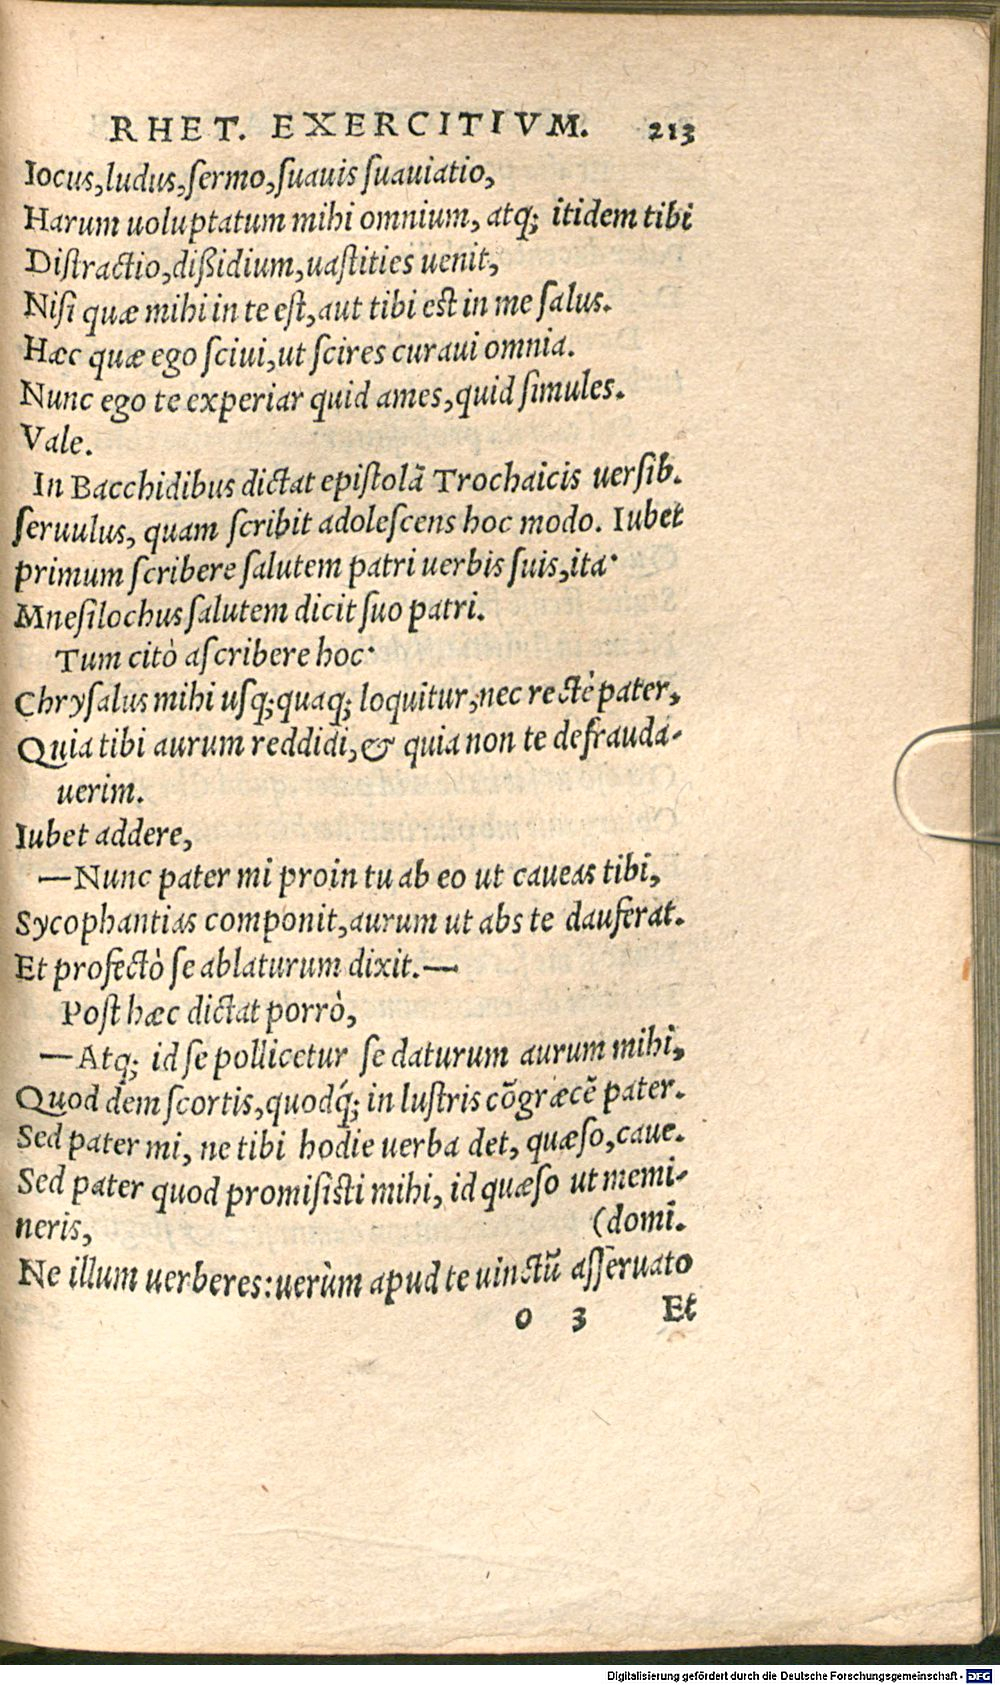 RHET. EXERCITIVM. 213
Iocus, ludus, ſermo, ſuauis ſuauiatio,
Harum uoluptatum mihi omnium, atq; itidem tibi
Diſtractio, dißidium, uaſtities uenit,
Niſi quæ mihi in te eſt, aut tibi eſt in me ſalus.
Hæc quæ ego ſciui, ut ſcires curaui omnia.
Nunc ego te experiar quid ames, quid ſimules.
Vale.
In Bacchidibus dictat epiſtolã Trochaicis uerſib.
ſeruulus, quam ſcribit adoleſcens hoc modo. Iubet
primum ſcribere ſalutem patri uerbis ſuis, ita·
Mneſilochus ſalutem dicit ſuo patri.
Tum citò aſcribere hoc·
Chryſalus mihi uſq; quaq; loquitur, nec rectè pater,
Quia tibi aurum reddidi, & quia non te defrauda-
uerim.
Iubet addere,
—Nunc pater mi proin tu ab eo ut caueas tibi,
Sycophantias componit, aurum ut abs te dauferat.
Et profectò ſe ablaturum dixit.—
Poſt hæc dictat porrò,
—Atq; id ſe pollicetur ſe daturum aurum mihi,
Quod dem ſcortis, quodq́; in luſtris cõgræcẽ pater.
Sed pater mi, ne tibi hodie uerba det, quæſo, caue.
Sed pater quod promiſiſti mihi, id quæſo ut memi-
neris, (domi.
Ne illum uerberes: uerùm apud te uinctũ aſſeruato
o 3 Et
Digitalisierung gefördert durch die Deutsche Forschungsgemeinschaft - DFG